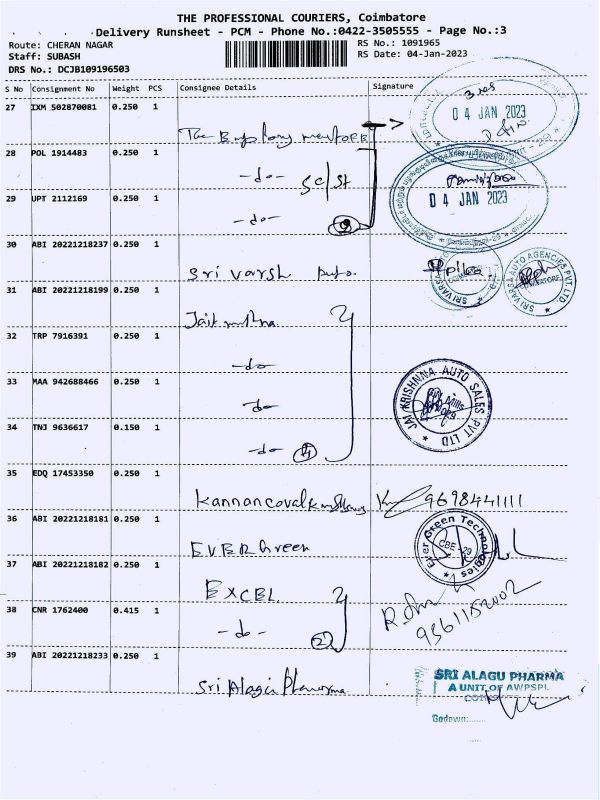 THE PROFESSIONAL COURIERS, Coimbatore
Delivery Runsheet - PCM - Phone No.:0422-3505555 - Page No.:3
Route: CHERAN NAGAR RS No.: 1091965
Staff: SUBASH RS Date: 04-Jan-2023
DRS No.: DCJB109196503
S No Consignment No Weight PCS Consignee Details Signature
27 IXM 502870081 0.250 1
04 JAN 2023
28 POL 1914483 0.250 1
-do- SC/ST
29 UPT 2112169 0.250 1
04 JAN 2023
-do- 3
30 ABI 20221218237 0.250 1
Sri varsh Auto.
SRI VARSHA AUTO AGENCIES PVT. LTD
31 ABI 20221218199 0.250 1
32 TRP 7916391 0.250 1
-do-
33 MAA 942688466 0.250 1
-do-
JAI KRISHNNA AUTO SALES PVT LTD
34 TNJ 9636617 0.150 1
-do- 4
35 EDQ 17453350 0.250 1
9698441111
36 ABI 20221218181 0.250 1
EVERGreen
Ever Green Technologies
CBE-29
37 ABI 20221218182 0.250 1
EXCEL
38 CNR 1762400 0.415 1
-do- 2
9361152002
39 ABI 20221218233 0.250 1
Sri Alagu Pharma
SRI ALAGU PHARMA
A UNIT OF AWPSPL
Godown:......